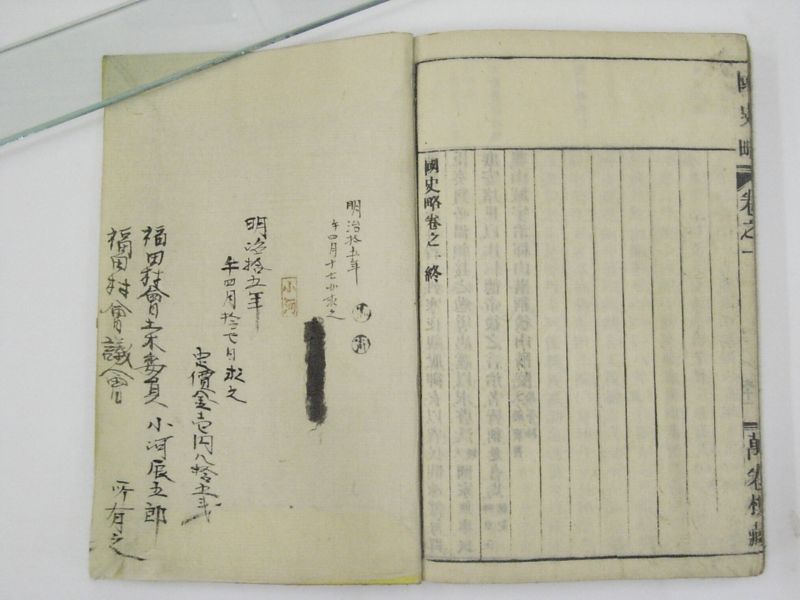 國史略
卷之一
萬卷樓藏
國史略卷之一終
明治拾五年
午四月十七日求之
小河
明治拾五年
午四月拾七日求之
定價金壱円八拾五戋
福田村會土木委員 小河辰五郎
福田村會議會 所有之